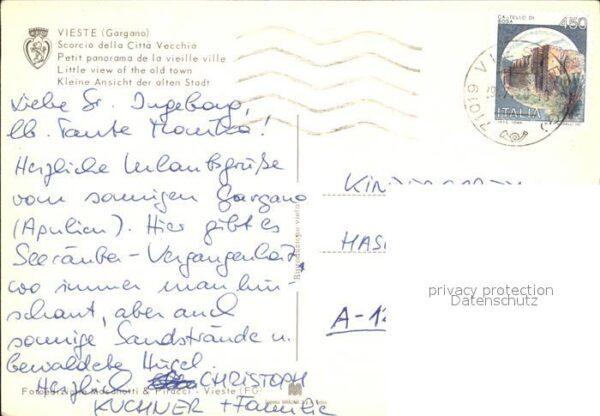 VIESTE (Gargano)
Scorcio della Città Vecchia
Petit panorama de la vieille ville
Little view of the old town
Kleine Ansicht der alten Stadt
CASTELLO DI
450
ITALIA
71019 VI
Liebe Sr. Ingeborg,
lb. Tante Monika!
Herzliche Urlaubsgrüße
vom sonnigen Gargano
(Apulien). Hier gibt es
Seeräuber-Vergangenheit,
wo immer man hin-
schaut, aber auch
sonnige Sandstrände u.
bewaldete Hügel.
Herzlich CHRISTOPH
KUCHNER + Familie
Riproduzione vietata
HAS
A-12
privacy protection
Datenschutz
Fotoedizione & - Vieste (FG